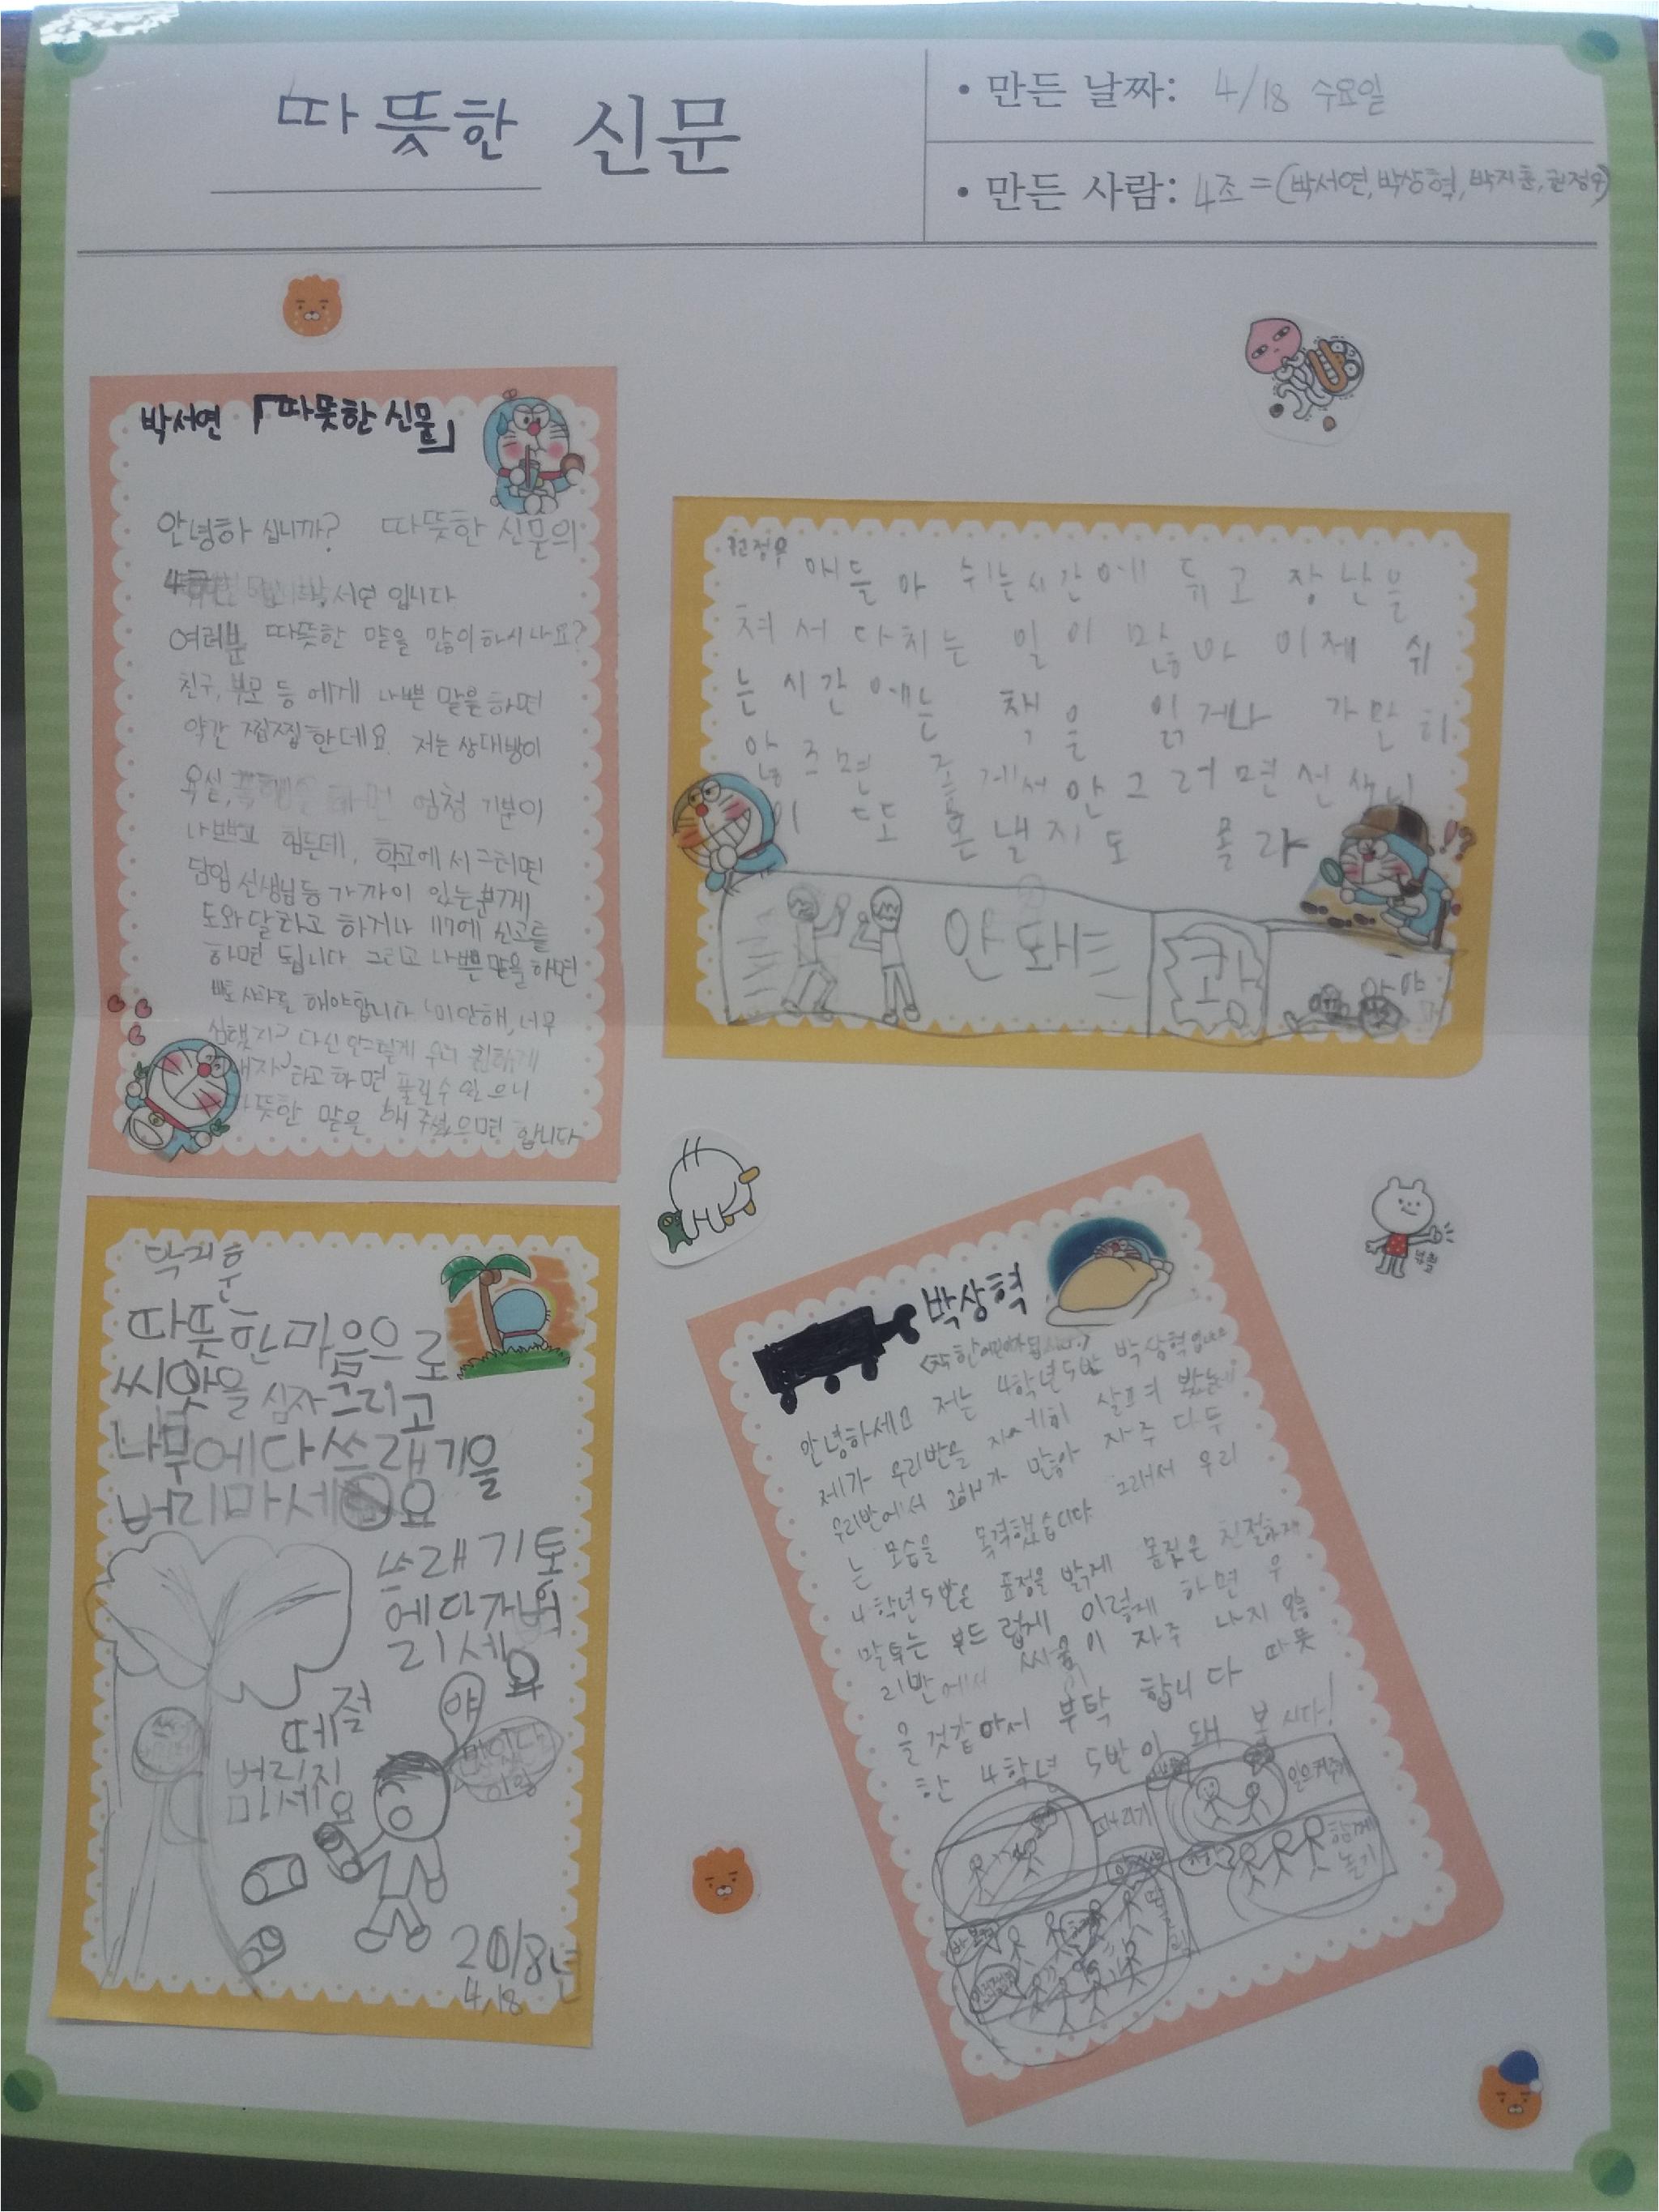 따뜻한 신문
• 만든 날짜: 4/18 수요일
• 만든 사람: 4조=(박서연, 박상혁, 박지훈, 권정우)
박서연 「따뜻한 신문」
안녕하십니까? 따뜻한 신문의
서연 입니다
여러분 따뜻한 말을 많이하시나요?
친구, 부모 등 에게 나쁜 말을하면
약간 찝찝한데요. 저는 상대방이
욕설, 엄청 기분이
나쁘고 힘든데, 학교에서 그러면
담임 선생님등 가까이 있는분께
도와달라고 하거나 117에 신고를
하면 됩니다 그리고 나쁜말을 하면
해야합니다 '미안해, 너무
심했지? 다신 안그럴게 우리 친하게
라고 하면 풀릴수 있으니
따뜻한 말을 해 주셨으면 합니다
권정우
애들아 쉬는시간에 뛰고 장난을
쳐서 다치는 일이 많아 이제 쉬
는 시간에는 책을 읽거나 가만히
앉즈면 안그러면 선생님
이 또 혼낼지도 몰라
안돼
쾅
아야
박지훈
따뜻한마음으로
씨앗을 심자그리고
나무에다쓰래기을
버리마세요
쓰래기통
에다가버
리세요
떼절
버리지
마세요
야
2018년
4.18
박상혁
안녕하세요 저는 4학년5반 박상혁입니다
제가 우리반을 자세히 살프며 봤는데
우리반에서 오해가 많아 자주 다두
는 모습을 목격했습니다. 그래서 우리
4학년5반은 표정을 밝게 몸짓은 친절하게
말투는 부드럽게 이렇게 하면 우
리반에서 싸움이 자주 나지 않
을것같아서 부탁 합니다 따뜻
한 4학년 5반이 돼 봅시다!
때리기
일으켜주기
함께
놀기